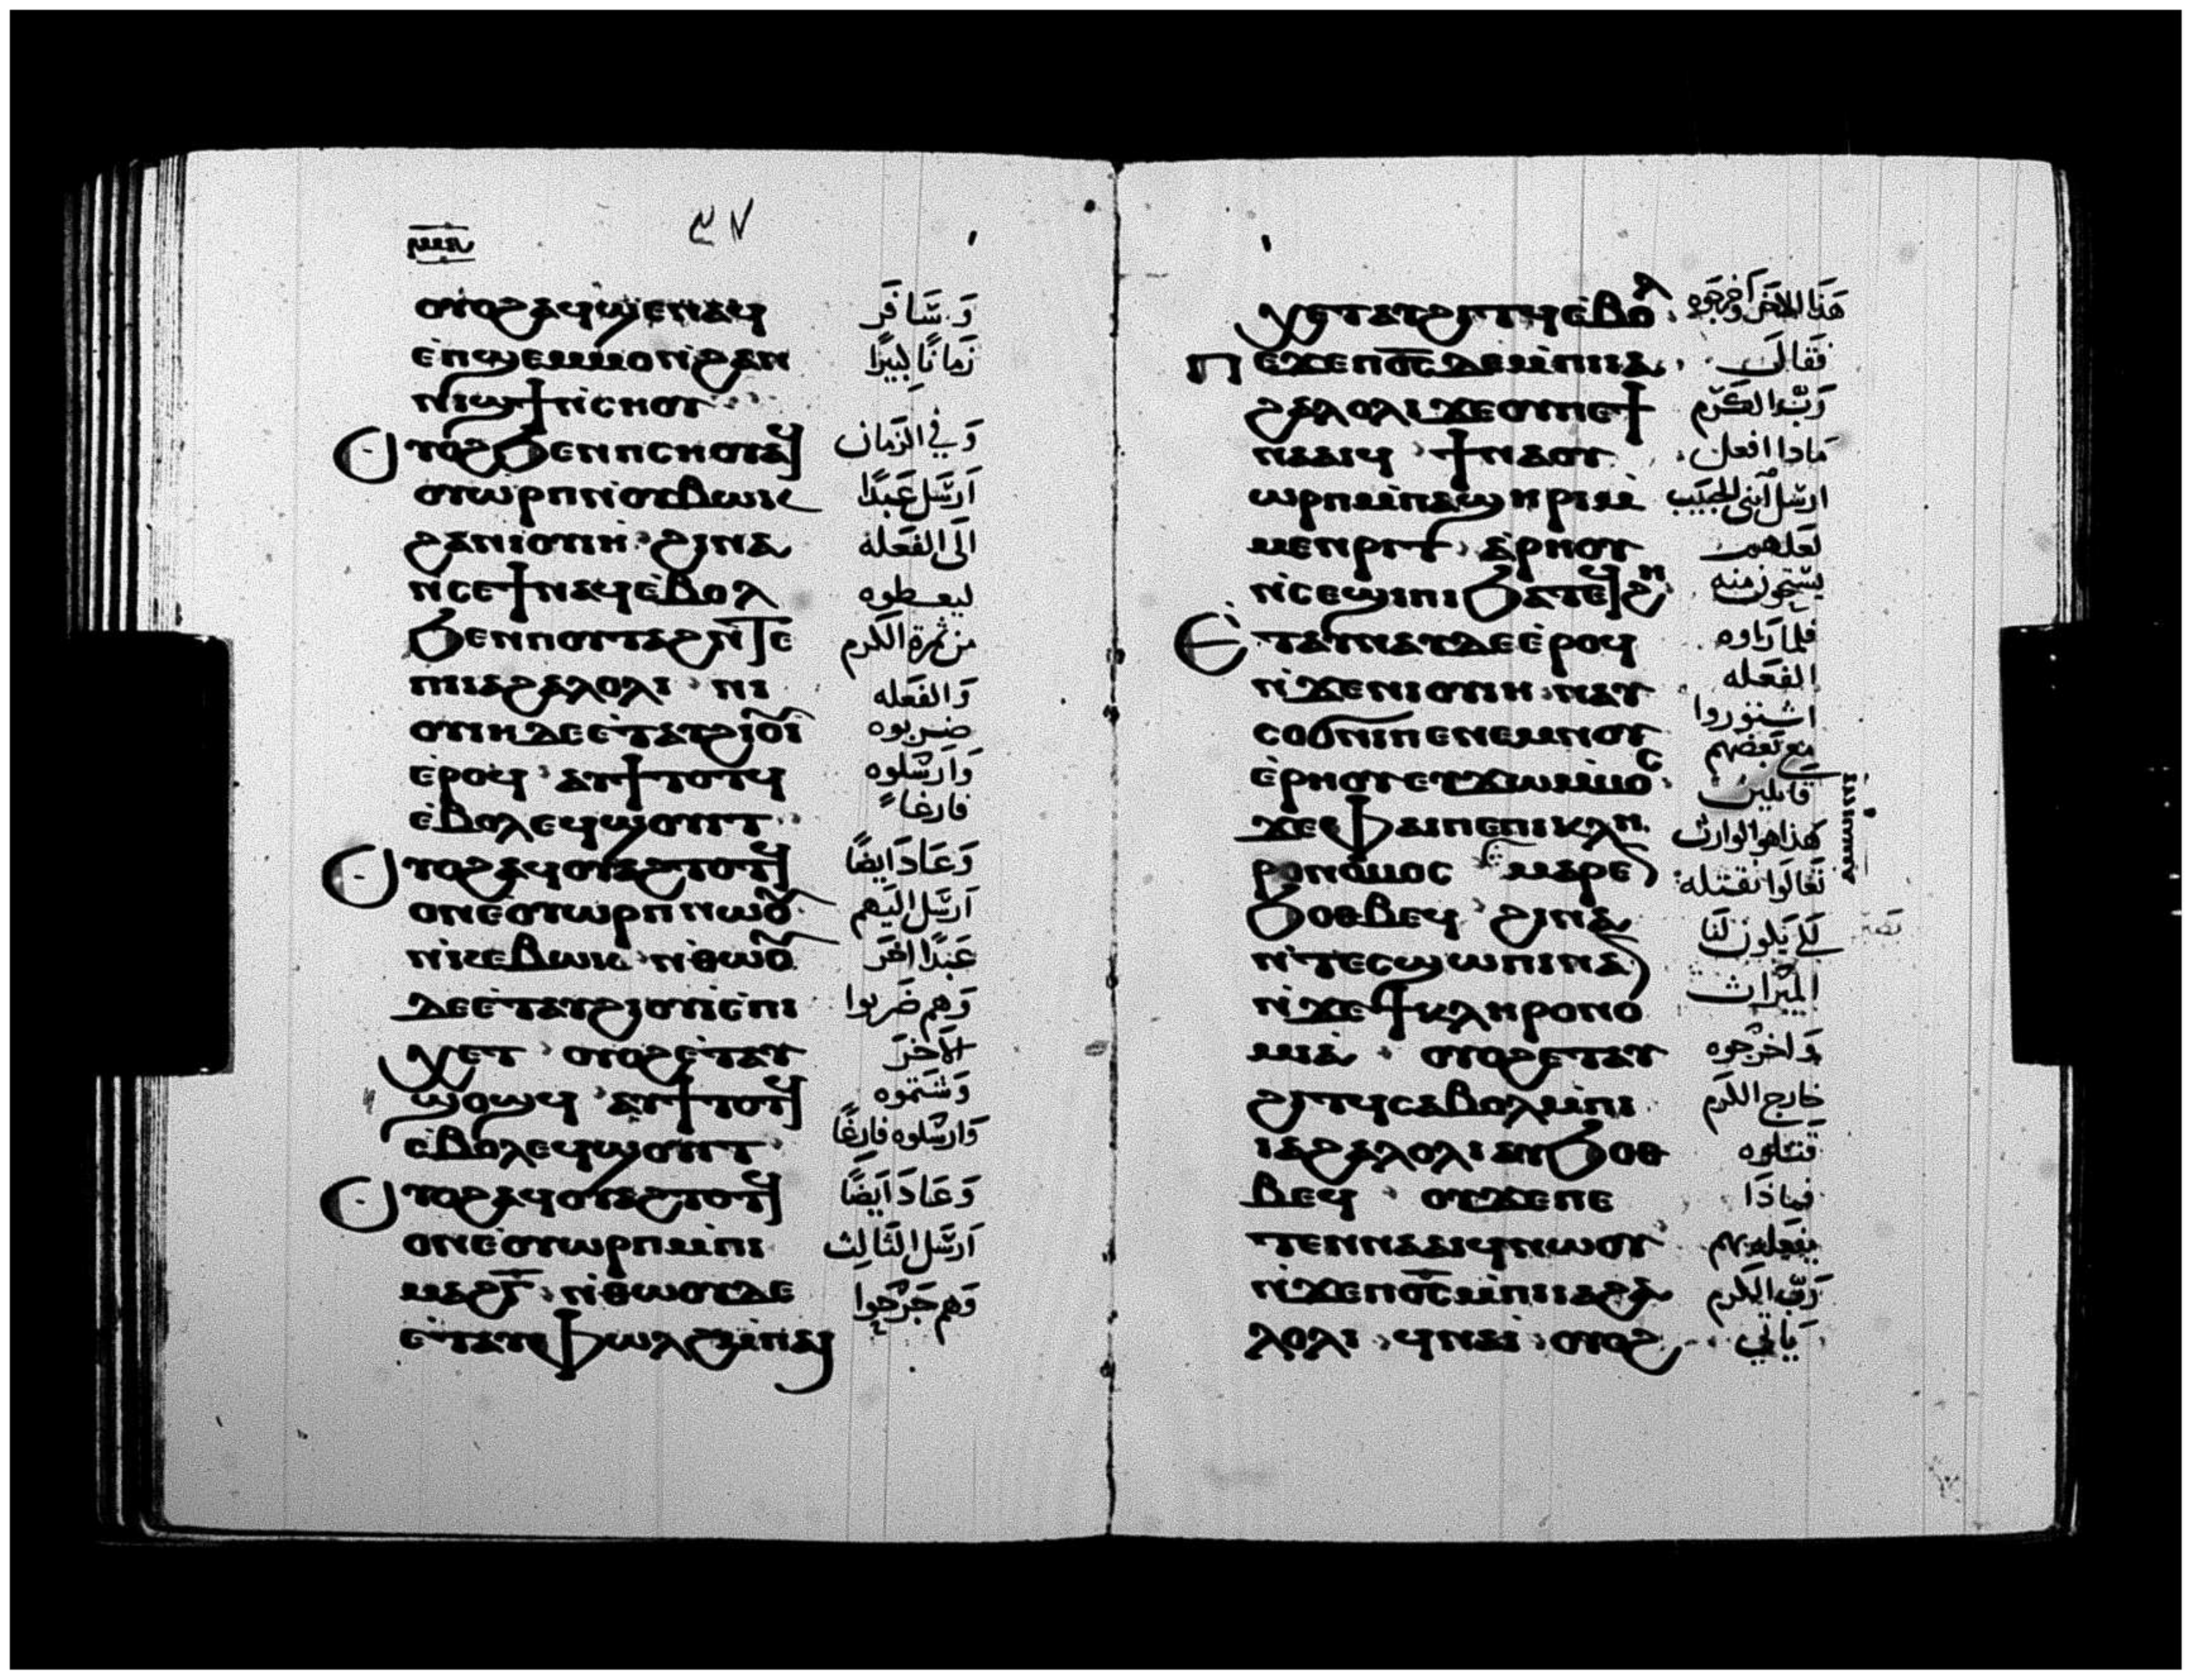 ⲟⲩⲟϩⲁϥϣⲉⲛⲁϥ
وَسَّافَر
ⲉ̀ⲡϣⲉⲙⲙⲟⲛ̀ϩⲁⲛ
زَمانًا كبيرًا
ⲛⲓϣϯⲛ̀ⲥⲏⲟⲩ
ⲟⲩⲟϩϧⲉⲛⲡⲥⲏⲟⲩⲁϥ
وَفي الزَمان
ⲟⲩⲱⲣⲡⲛ̀ⲟⲩⲃⲱⲕ
اَرسَل عَبدًا
ϩⲁⲛⲓⲟⲩⲓⲏ ϩⲓⲛⲁ
الَى الفَعَلة
ⲛ̀ⲥⲉϯⲛⲁϥⲉ̀ⲃⲟⲗ
ليعطوه
ϧⲉⲛⲡⲟⲩⲧⲁϩⲛ̀ⲧⲉ
من ثمرة الكرم
ⲡⲓⲓⲁϩⲁⲗⲟⲗⲓ ⲛⲓ
وَالفَعله
ⲟⲩⲓⲏⲇⲉⲉ̀ⲧⲁⲩϩⲓⲟⲩⲓ
ضربوه
ⲉ̀ⲣⲟϥ ⲁⲩϯⲧⲟⲧϥ
وَارسَلوه
ⲉ̀ⲃⲟⲗⲉϥϣⲟⲩⲓⲧ
فارغاً
ⲟⲩⲟϩⲁϥⲟⲩⲁϩⲧⲟⲧϥ
وَعَادَ ايضًا
ⲟⲛⲉ̀ⲟⲩⲱⲣⲡⲛⲱⲟⲩ
اَرسَل اليَهم
ⲛ̀ⲕⲉⲃⲱⲕ ⲛ̀ⲑⲱⲟⲩ
عَبدًا اخَر
ⲇⲉⲉ̀ⲧⲁⲩϩⲓⲟⲩⲓⲉ̀ⲡⲓ
وَهم ضَربوا
ⲭⲉⲧ ⲟⲩⲟϩⲉ̀ⲧⲁⲩ
الآخَر
ϣⲟϣϥ ⲁⲩϯⲧⲟⲧϥ
وَشَتموه
ⲉ̀ⲃⲟⲗⲉϥϣⲟⲩⲓⲧ
وَارسَلوه فارغًا
ⲟⲩⲟϩⲁϥⲟⲩⲁϩⲧⲟⲧϥ
وَعَادَ ايَضًا
ⲟⲛⲉ̀ⲟⲩⲱⲣⲡⲙ̀ⲡⲓ
اَرسَل الثَالِث
ⲙⲁϩⲅ̅ ⲛ̀ⲑⲱⲟⲩⲇⲉ
وَهم جَرحوا
ⲉ̀ⲧⲁⲩⲫⲱⲗϩⲙ̀ⲡⲁⲓ
ⲭⲉⲧⲁⲩϩⲓⲧϥⲉ̀ⲃⲟⲗ
هَذا الآخَر وَاخرَجوه
ⲡⲉϫⲉⲡⲟ̅ⲥ̅ⲇⲉⲙ̀ⲡⲓⲓⲁ
فَقالَ
ϩⲁⲗⲟⲗⲓϫⲉⲟⲩⲡⲉϯ
رَبّ الكَرم
ⲛⲁⲁⲓϥ ϯⲛⲁⲟⲩ
مَاذا افعل
ⲱⲣⲡⲙ̀ⲡⲁϣⲏⲣⲓⲙ̀
ارسَل ابني الحَبيب
ⲙⲉⲛⲣⲓⲧ ⲁ̀ⲣⲏⲟⲩ
لَعلهم
ⲛ̀ⲥⲉϣⲓⲡⲓϧⲁⲧⲉϥϩⲏ
يستحون منه
ⲉ̀ⲧⲁⲩⲛⲁⲩⲇⲉⲉ̀ⲣⲟϥ
فلما رَاوه
ⲛ̀ϫⲉⲛⲓⲟⲩⲓⲏ ⲛⲁⲩ
الفَعَله
ⲥⲟϭⲛⲓⲡⲉⲛⲉⲙⲛⲟⲩ
اشتوروا
ⲉ̀ⲣⲏⲟⲩⲉⲩϫⲱⲙ̀ⲙⲟⲥ
مع بَعضهم
قايلين
ϫⲉⲫⲁⲓⲡⲉⲡⲓⲕⲗⲏ
هَذا هو الوارث
ⲣⲟⲛⲟⲙⲟⲥ ⲙⲁⲣⲉ
تعَالَوا نَقتله
ϧⲟⲑⲃⲉϥ ϩⲓⲛⲁ
لكَي يَكون لَنَا
ⲛ̀ⲧⲉⲥϣⲱⲡⲓⲛⲁ
الميَراث
ⲛ̀ϫⲉϯⲕⲗⲏⲣⲟⲛⲟ
ⲙⲓⲁ ⲟⲩⲟϩⲉⲧⲁⲩ
وَاخرجوه
ϩⲓⲧϥⲥⲁⲃⲟⲗⲙ̀ⲡⲓ
خارج الكَرم
ⲓⲁϩⲁⲗⲟⲗⲓⲁⲩϧⲟⲑ
قتلوه
ⲃⲉϥ ⲟⲩϫⲉⲡⲉ
فماذَا
ⲧⲉⲛⲛⲁⲁⲓϥⲛⲱⲟⲩ
يَفعَله بهم
ⲛ̀ϫⲉⲡⲟ̅ⲥ̅ⲙ̀ⲡⲓⲓⲁϩⲁ
رَبّ الكَرم
ⲗⲟⲗⲓ ϥⲛⲁⲓ̀ ⲟⲩⲟϩ
يَاتي